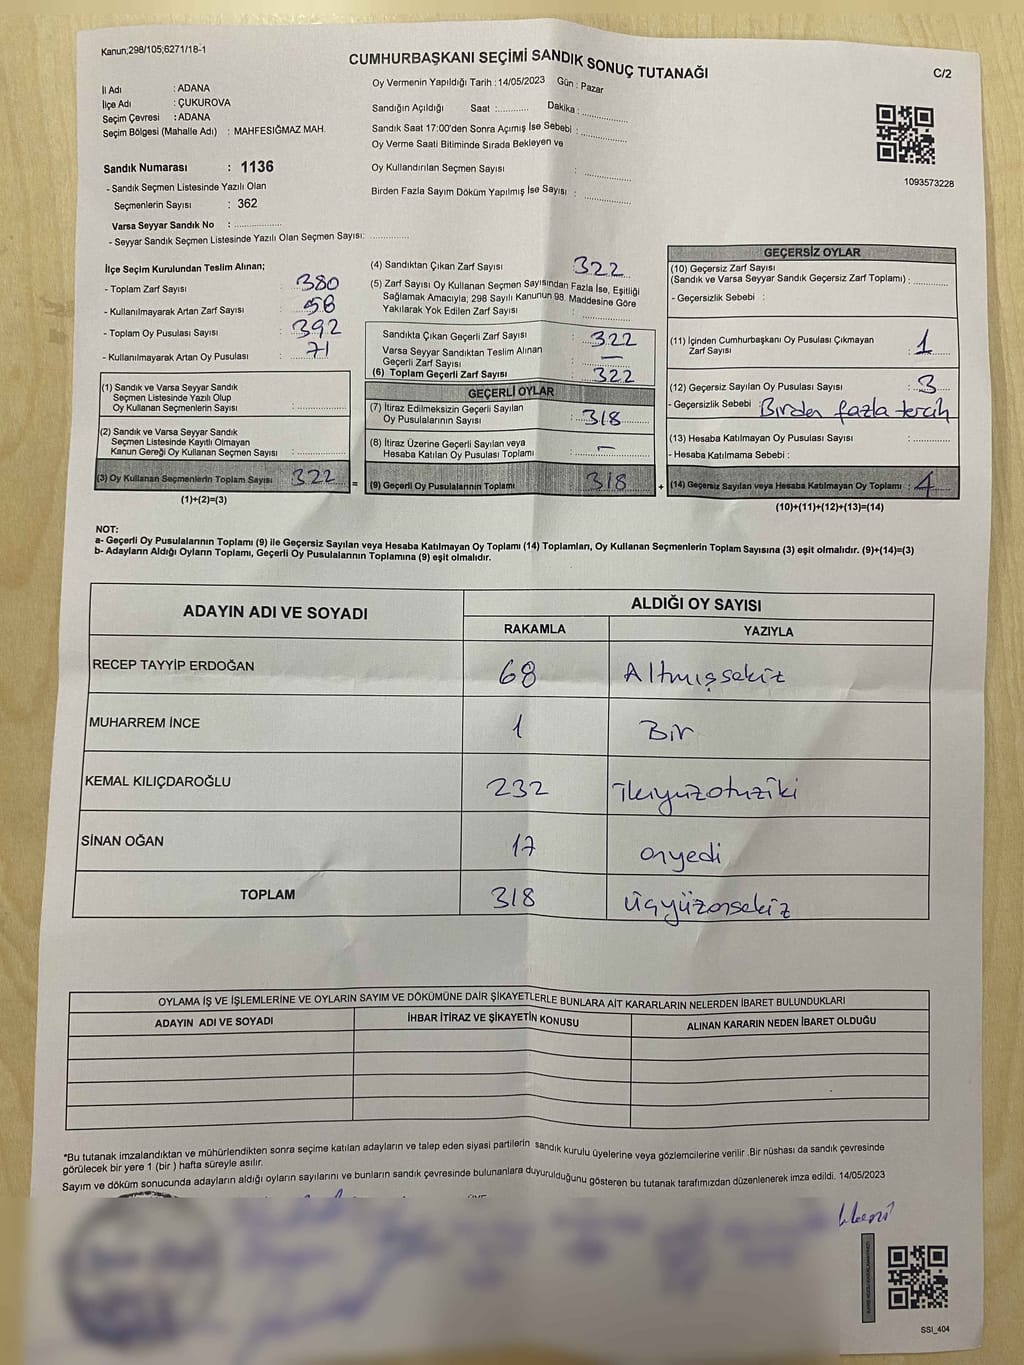 Kanun;298/105;6271/18-1
CUMHURBAŞKANI SEÇİMİ SANDIK SONUÇ TUTANAĞI
C/2
İl Adı : ADANA
İlçe Adı : ÇUKUROVA
Seçim Çevresi : ADANA
Seçim Bölgesi (Mahalle Adı) : MAHFESIĞMAZ MAH.
Sandık Numarası : 1136
- Sandık Seçmen Listesinde Yazılı Olan
Seçmenlerin Sayısı : 362
Varsa Seyyar Sandık No : ..............
- Seyyar Sandık Seçmen Listesinde Yazılı Olan Seçmen Sayısı: ............
Oy Vermenin Yapıldığı Tarih : 14/05/2023 Gün : Pazar
Sandığın Açıldığı Saat :.......... Dakika :..............
Sandık Saat 17:00'den Sonra Açımış İse Sebebi : ..............
Oy Verme Saati Bitiminde Sırada Bekleyen ve
Oy Kullandırılan Seçmen Sayısı : ..............
Birden Fazla Sayım Döküm Yapılmış İse Sayısı : ..............
1093573228
İlçe Seçim Kurulundan Teslim Alınan;
- Toplam Zarf Sayısı : 380
- Kullanılmayarak Artan Zarf Sayısı : 58
- Toplam Oy Pusulası Sayısı : 392
- Kullanılmayarak Artan Oy Pusulası : 71
(1) Sandık ve Varsa Seyyar Sandık
Seçmen Listesinde Yazılı Olup
Oy Kullanan Seçmenlerin Sayısı : ..............
(2) Sandık ve Varsa Seyyar Sandık
Seçmen Listesinde Kayıtlı Olmayan
Kanun Gereği Oy Kullanan Seçmen Sayısı : ..............
(3) Oy Kullanan Seçmenlerin Toplam Sayısı : 322
(1)+(2)=(3)
(4) Sandıktan Çıkan Zarf Sayısı : 322
(5) Zarf Sayısı Oy Kullanan Seçmen Sayısından Fazla İse, Eşitliği
Sağlamak Amacıyla; 298 Sayılı Kanunun 98. Maddesine Göre
Yakılarak Yok Edilen Zarf Sayısı : ..............
Sandıkta Çıkan Geçerli Zarf Sayısı : 322
Varsa Seyyar Sandıktan Teslim Alınan
Geçerli Zarf Sayısı : —
(6) Toplam Geçerli Zarf Sayısı : 322
GEÇERLİ OYLAR
(7) İtiraz Edilmeksizin Geçerli Sayılan
Oy Pusulalarının Sayısı : 318
(8) İtiraz Üzerine Geçerli Sayılan veya
Hesaba Katılan Oy Pusulası Toplamı : —
= (9) Geçerli Oy Pusulalarının Toplamı : 318
GEÇERSİZ OYLAR
(10) Geçersiz Zarf Sayısı
(Sandık ve Varsa Seyyar Sandık Geçersiz Zarf Toplamı) : ............
- Geçersizlik Sebebi :
(11) İçinden Cumhurbaşkanı Oy Pusulası Çıkmayan
Zarf Sayısı : 1
(12) Geçersiz Sayılan Oy Pusulası Sayısı : 3
- Geçersizlik Sebebi : Birden fazla tercih
(13) Hesaba Katılmayan Oy Pusulası Sayısı : ............
- Hesaba Katılmama Sebebi :
+ (14) Geçersiz Sayılan veya Hesaba Katılmayan Oy Toplamı : 4
(10)+(11)+(12)+(13)=(14)
NOT:
a- Geçerli Oy Pusulalarının Toplamı (9) ile Geçersiz Sayılan veya Hesaba Katılmayan Oy Toplamı (14) Toplamları, Oy Kullanan Seçmenlerin Toplam Sayısına (3) eşit olmalıdır. (9)+(14)=(3)
b- Adayların Aldığı Oyların Toplamı, Geçerli Oy Pusulalarının Toplamına (9) eşit olmalıdır.
ADAYIN ADI VE SOYADI
ALDIĞI OY SAYISI
RAKAMLA YAZIYLA
RECEP TAYYİP ERDOĞAN 68 Altmışsekiz
MUHARREM İNCE 1 Bir
KEMAL KILIÇDAROĞLU 232 ikiyüzotuziki
SİNAN OĞAN 17 onyedi
TOPLAM 318 üçyüzonsekiz
OYLAMA İŞ VE İŞLEMLERİNE VE OYLARIN SAYIM VE DÖKÜMÜNE DAİR ŞİKAYETLERLE BUNLARA AİT KARARLARIN NELERDEN İBARET BULUNDUKLARI
ADAYIN ADI VE SOYADI İHBAR İTİRAZ VE ŞİKAYETİN KONUSU ALINAN KARARIN NEDEN İBARET OLDUĞU
*Bu tutanak imzalandıktan ve mühürlendikten sonra seçime katılan adayların ve talep eden siyasi partilerin sandık kurulu üyelerine veya gözlemcilerine verilir .Bir nüshası da sandık çevresinde
görülecek bir yere 1 (bir ) hafta süreyle asılır.
Sayım ve döküm sonucunda adayların aldığı oyların sayılarını ve bunların sandık çevresinde bulunanlara duyurulduğunu gösteren bu tutanak tarafımızdan düzenlenerek imza edildi. 14/05/2023
SSI_404